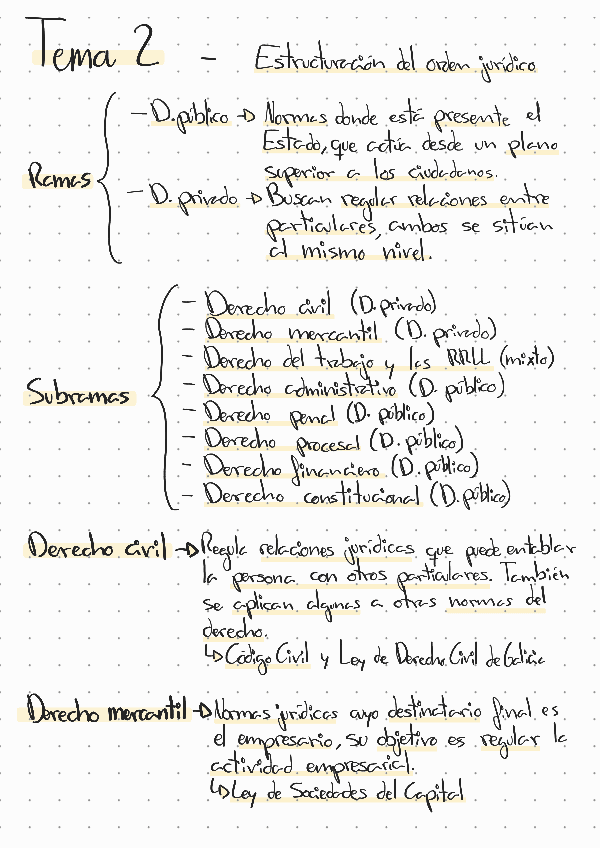 Tema 2 - Estructuración del orden jurídico
Ramas
- D. público → Normas donde está presente el
Estado, que actúa desde un plano
superior a los ciudadanos.
- D. privado → Buscan regular relaciones entre
particulares, ambos se sitúan
al mismo nivel.
Subramas
- Derecho civil (D. privado)
- Derecho mercantil (D. privado)
- Derecho del trabajo y las RRLL (mixto)
- Derecho administrativo (D. público)
- Derecho penal (D. público)
- Derecho procesal (D. público)
- Derecho financiero (D. público)
- Derecho constitucional (D. público)
Derecho civil → Regula relaciones jurídicas que puede entablar
la persona con otros particulares. También
se aplican algunas a otras normas del
derecho.
↳ Código Civil y Ley de Derecho Civil de Galicia
Derecho mercantil → Normas jurídicas cuyo destinatario final es
el empresario, su objetivo es regular la
actividad empresarial.
↳ Ley de Sociedades del Capital